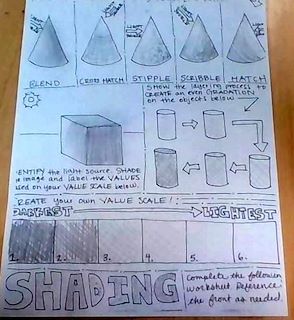 BLEND
CROSS HATCH
STIPPLE
SCRIBBLE
HATCH
SHOW the layering process to
CREATE an even GRADATION
on the objects below
IDENTIFY the light source. SHADE
image and label the VALUES
used on your VALUE SCALE below.
CREATE your own VALUE SCALE!
DARKEST
LIGHTEST
1.
2.
3.
4.
5.
6.
SHADING
Complete the following
worksheet. Reference
the front as needed.